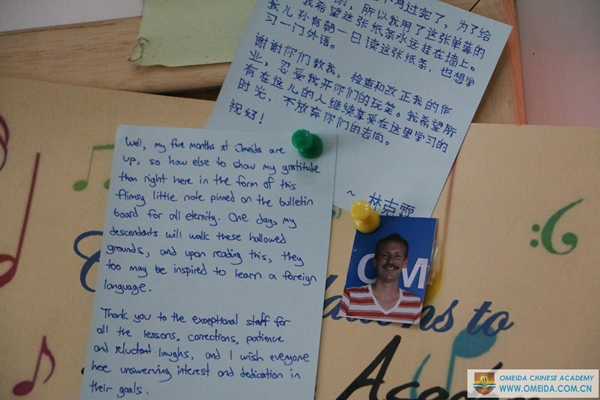 月过完了，为了给
所以就用了这张单薄的
我希望这张纸条永远挂在墙上。
我儿孙有朝一日读这张纸条，也想学
习一门外语。
谢谢你们教我，检查和改正我的作
业，忍受我开你们的玩笑。我希望所
有在这儿的人继续享受在这里学习的
时光，不放弃你们的志向。
祝好！
~ 林克霏
Well, my five months at Omeida are
up, so how else to show my gratitude
than right here in the form of this
flimsy little note pinned on the bulletin
board for all eternity. One day, my
descendants will walk these hallowed
grounds, and upon reading this, they
too may be inspired to learn a foreign
language.
Thank you to the exceptional staff for
all the lessons, corrections, patience
and reluctant laughs, and I wish everyone
here unswerving interest and dedication in
their goals.
OM
to
OMEIDA CHINESE ACADEMY
WWW.OMEIDA.COM.CN